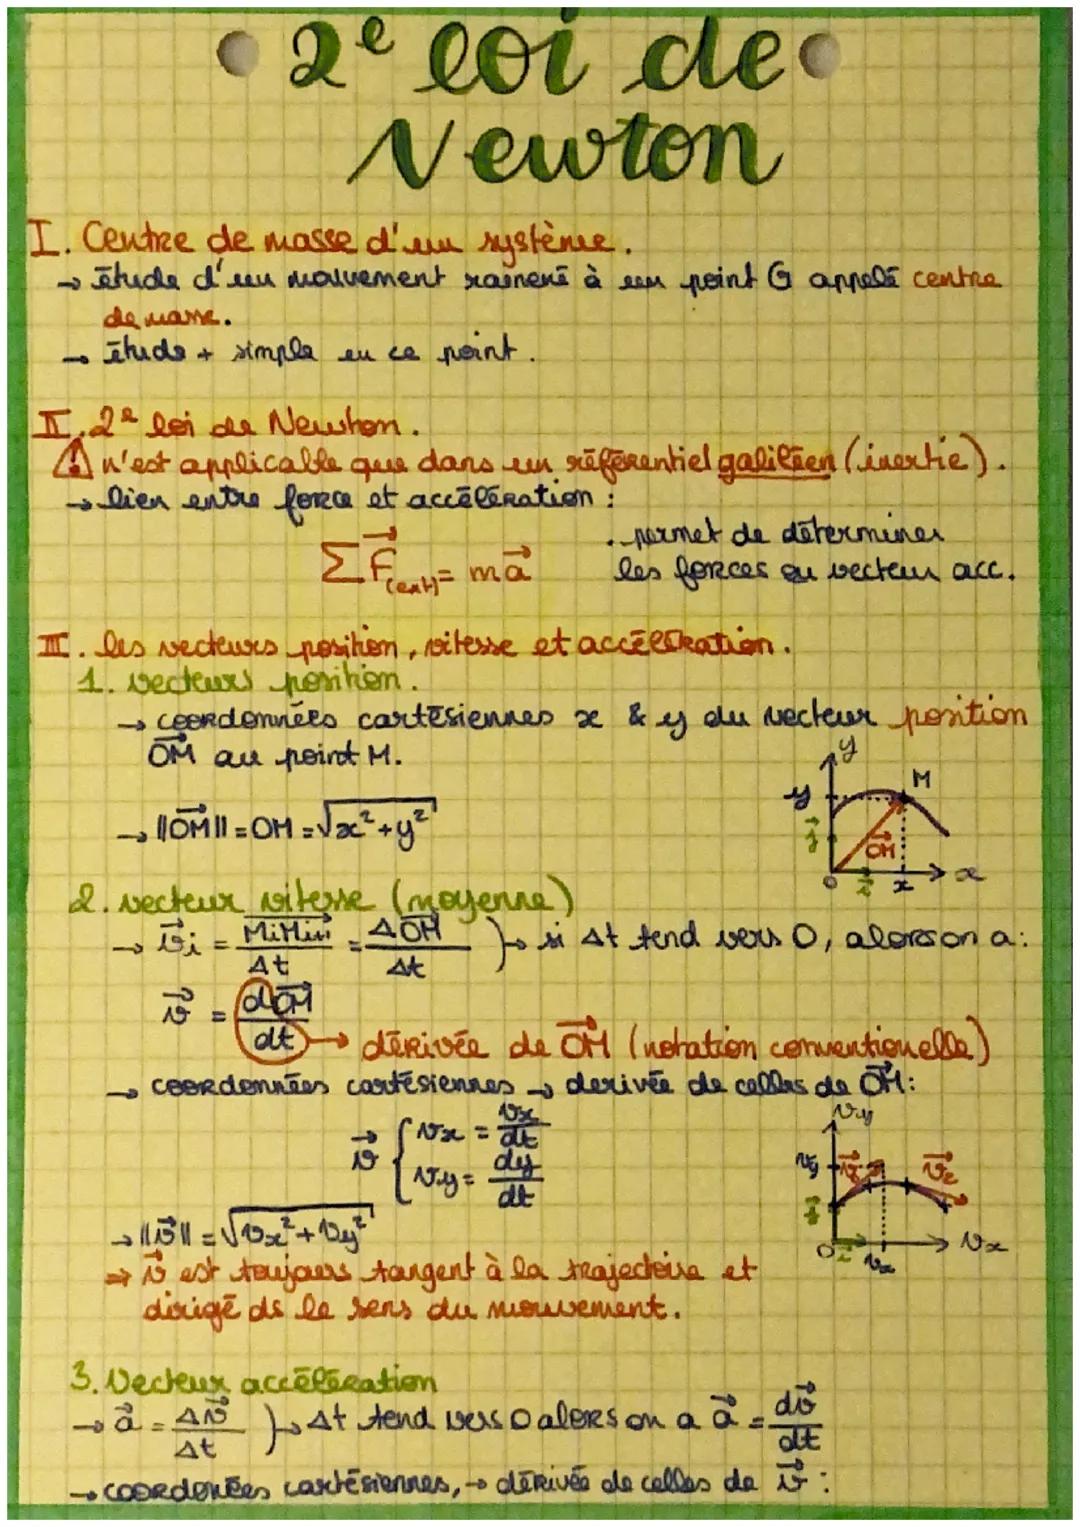 2e loi de
Newton
I. Centre de masse d'un système.
→ étude d'un mouvement ramené à un point G appelé centre
de masse.
→ étude + simple en ce point.
II. 2e loi de Newton.
⚠ n'est applicable que dans un référentiel galiléen (inertie).
→ lien entre force et accélération :
. permet de déterminer
∑F⃗(ext) = ma⃗ les forces ou vecteur acc.
III. les vecteurs position, vitesse et accélération.
1. vecteurs position.
→ coordonnées cartésiennes x & y du vecteur position
OM⃗ au point M.
y
y M
→ ||OM⃗|| = OM = √x²+y²
j⃗ OM⃗
O i⃗ x x
2. vecteur vitesse (moyenne)
→ v⃗i = MiMi+1/Δt = ΔOM⃗/Δt } → si Δt tend vers 0, alors on a :
v⃗ = dOM⃗/dt
→ dérivée de OM⃗ (notation conventionelle)
→ coordonnées cartésiennes → derivée de celles de OM⃗ :
v⃗ { vx = vx/dt
vy = dy/dt
vy
vy v⃗ v⃗2
j⃗
O i⃗ vx vx
→ ||v⃗|| = √vx²+vy²
⇒ v⃗ est toujours tangent à la trajectoire et
dirigé ds le sens du mouvement.
3. Vecteur accélération
→ a⃗ = Δv⃗/Δt } → Δt tend vers 0 alors on a a⃗ = dv⃗/dt
→ coordonées cartésiennes, → dérivée de celles de v⃗ :